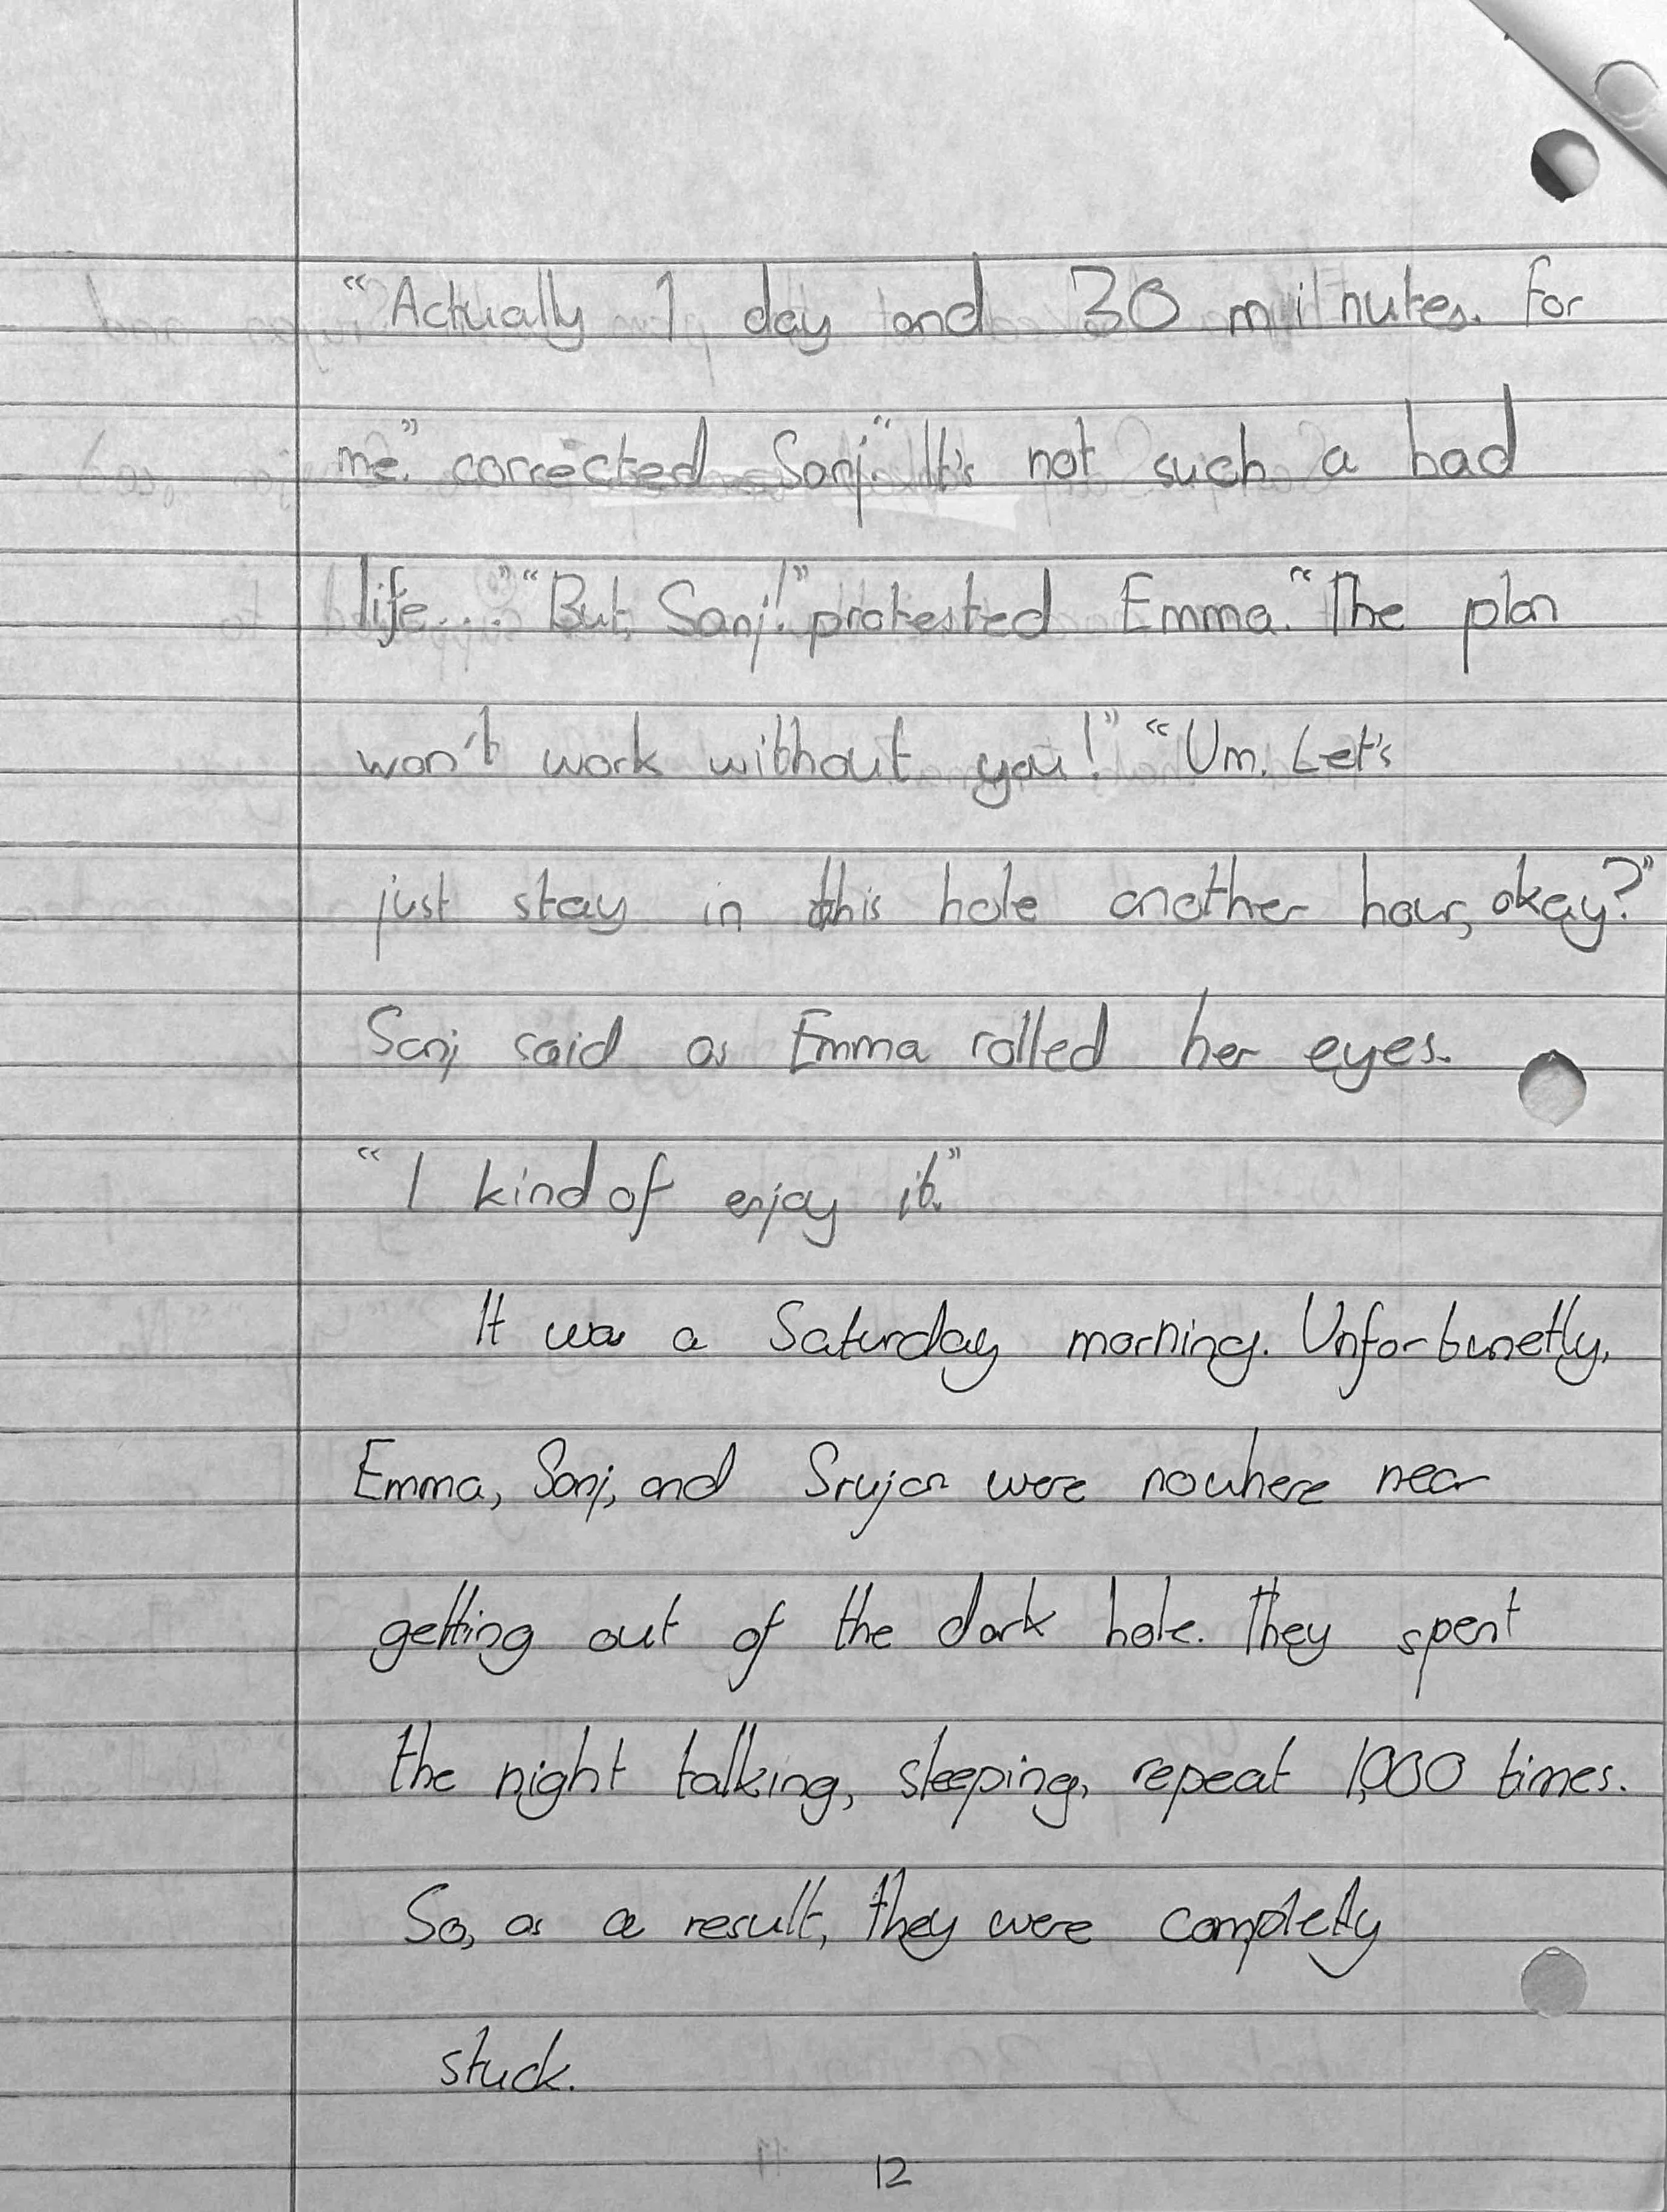 "Actually 1 day and 30 minutes. For
me." corrected Sanj. "It's not such a bad
life..." "But, Sanj!" protested Emma. "The plan
won't work without you!" "Um. Let's
just stay in this hole another hour, okay?"
Sanj said as Emma rolled her eyes.
"I kind of enjoy it."
It was a Saturday morning. Unfortunetly,
Emma, Sanj, and Srujan were nowhere near
getting out of the dark hole. They spent
the night talking, sleeping, repeat 1,000 times.
So, as a result, they were completly
stuck.
12